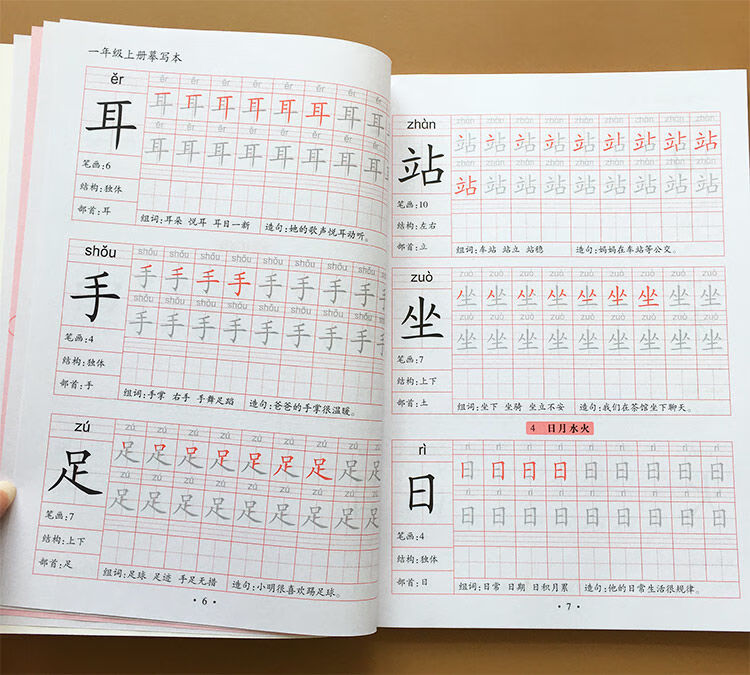 一年级上册摹写本
ěr
耳
笔画:6
结构:独体
部首:耳
ěr ěr ěr ěr ěr ěr ěr ěr
耳 耳 耳 耳 耳 耳 耳 耳
ěr ěr ěr ěr ěr ěr ěr ěr
耳 耳 耳 耳 耳 耳 耳 耳
组词:耳朵 悦耳 耳目一新 造句:她的歌声悦耳动听。
shǒu
手
笔画:4
结构:独体
部首:手
shǒu shǒu shǒu shǒu shǒu shǒu shǒu shǒu
手 手 手 手 手 手 手 手
shǒu shǒu shǒu shǒu shǒu shǒu shǒu shǒu
手 手 手 手 手 手 手 手
组词:手掌 右手 手舞足蹈 造句:爸爸的手掌很温暖。
zú
足
笔画:7
结构:上下
部首:足
zú zú zú zú zú zú zú zú
足 足 足 足 足 足 足 足
zú zú zú zú zú zú zú zú
足 足 足 足 足 足 足 足
组词:足球 足迹 手足无措 造句:小明很喜欢踢足球。
· 6 ·
zhàn
站
笔画:10
结构:左右
部首:立
zhàn zhàn zhàn zhàn zhàn zhàn zhàn zhàn zhàn
站 站 站 站 站 站 站 站 站
zhàn zhàn zhàn zhàn zhàn zhàn zhàn zhàn zhàn
站 站 站 站 站 站 站 站 站
组词:车站 站立 站稳 造句:妈妈在车站等公交。
zuò
坐
笔画:7
结构:上下
部首:土
zuò zuò zuò zuò zuò zuò zuò zuò zuò
坐 坐 坐 坐 坐 坐 坐 坐 坐
zuò zuò zuò zuò zuò zuò zuò zuò zuò
坐 坐 坐 坐 坐 坐 坐 坐 坐
组词:坐下 坐骑 坐立不安 造句:我们在茶馆坐下聊天。
4 日月水火
rì
日
笔画:4
结构:独体
部首:日
rì rì rì rì rì rì rì rì rì
日 日 日 日 日 日 日 日 日
rì rì rì rì rì rì rì rì rì
日 日 日 日 日 日 日 日 日
组词:日常 日期 日积月累 造句:他的日常生活很规律。
· 7 ·